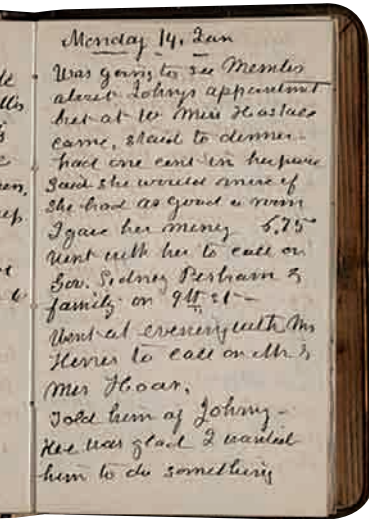 Monday 14, Jan
Was going to see Member
about Johnys appointment
but at 10 Miss
came, staid to dinner-
had one cent in her purse
said she would move if
she had as good a room
I gave her money 6,75
Went with her to call on
Gov. Sidney Perham &
family on 9th st-
Went at evening with Mr
to call on Mr &
Mrs Hoar,
Told him of Johny-
He was glad I wanted
him to do something